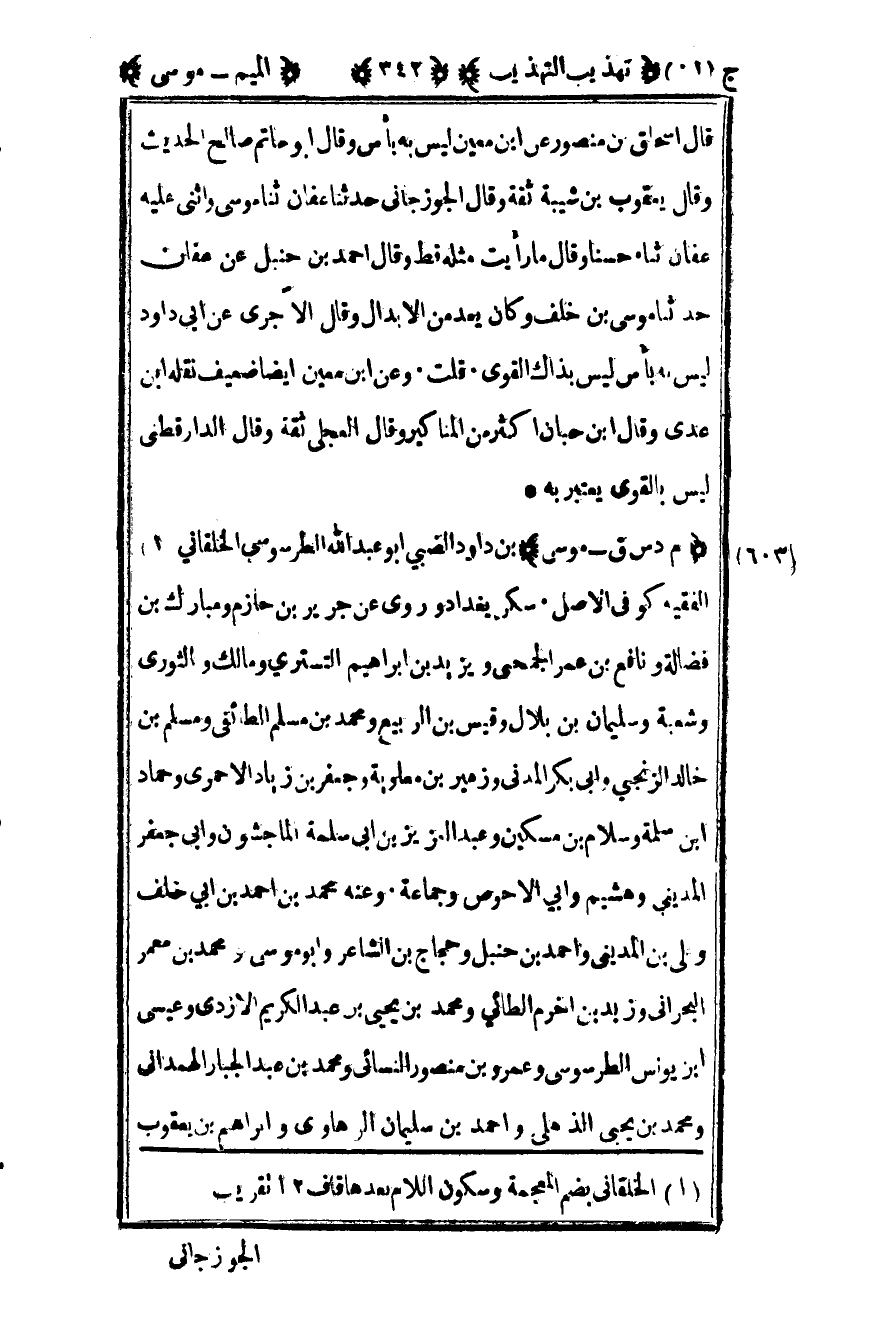 ج (٠١) ﴿ تهذيب التهذيب ﴾ ﴿ ٣٤٢ ﴾ ﴿ الميم ــ موسى ﴾
قال اسحاق بن منصور عن ابن معين ليس به بأس وقال ابو حاتم صالح الحديث
وقال يعقوب بن شيبة ثقة وقال الجوزجانى حدثنا عفان ثنا موسى واثنى عليه
عفان ثناء حسنا وقال ما رأيت مثله قط وقال احمد بن حنبل عن عفان
حدثنا موسى بن خلف وكان يعد من الابدال وقال الآجرى عن ابى داود
ليس به بأس ليس بذاك القوى ٠ قلت ٠ وعن ابن معين ايضا ضعيف نقله ابن
عدى وقال ابن حبان اكثر من المناكير وقال العجلى ثقة وقال الدارقطنى
ليس بالقوى يعتبر به ●
(٦٠٣) ﴿ م د س ق ــ موسى ﴾ بن داود الضبي ابو عبد الله الطرسوسي الخلقاني (١)
الفقيه كوفى الاصل ٠ سكن بغداد وروى عن جرير بن حازم ومبارك بن
فضالة ونافع بن عمر الجمحى ويزيد بن ابراهيم التستري ومالك والثورى
وشعبة وسليمان بن بلال وقيس بن الربيع ومحمد بن مسلم الطائفى ومسلم بن
خالد الزنجي وابى بكر المدنى وزهير بن معاوية وجعفر بن زياد الاحمرى وحماد
ابن سلمة وسلام بن مسكين وعبد العزيز بن ابى سلمة الماجشون وابى جعفر
المديني وهشيم وابي الاحوص وجماعة ٠ وعنه محمد بن احمد بن ابي خلف
وعلى بن المدينى واحمد بن حنبل وحجاج بن الشاعر وابو موسى ومحمد بن معمر
البحرانى وزيد بن اخرم الطائي ومحمد بن يحيى بن عبد الكريم الازدى وعيسى
ابن يونس الطرسوسى وعمرو بن منصور النسائى ومحمد بن عبد الجبار الهمدانى
ومحمد بن يحيى الذهلى واحمد بن سليمان الرهاوى وابراهيم بن يعقوب
(١) الخلقانى بضم المعجمة وسكون اللام بعدها قاف ١٢ تقريب
الجوزجانى